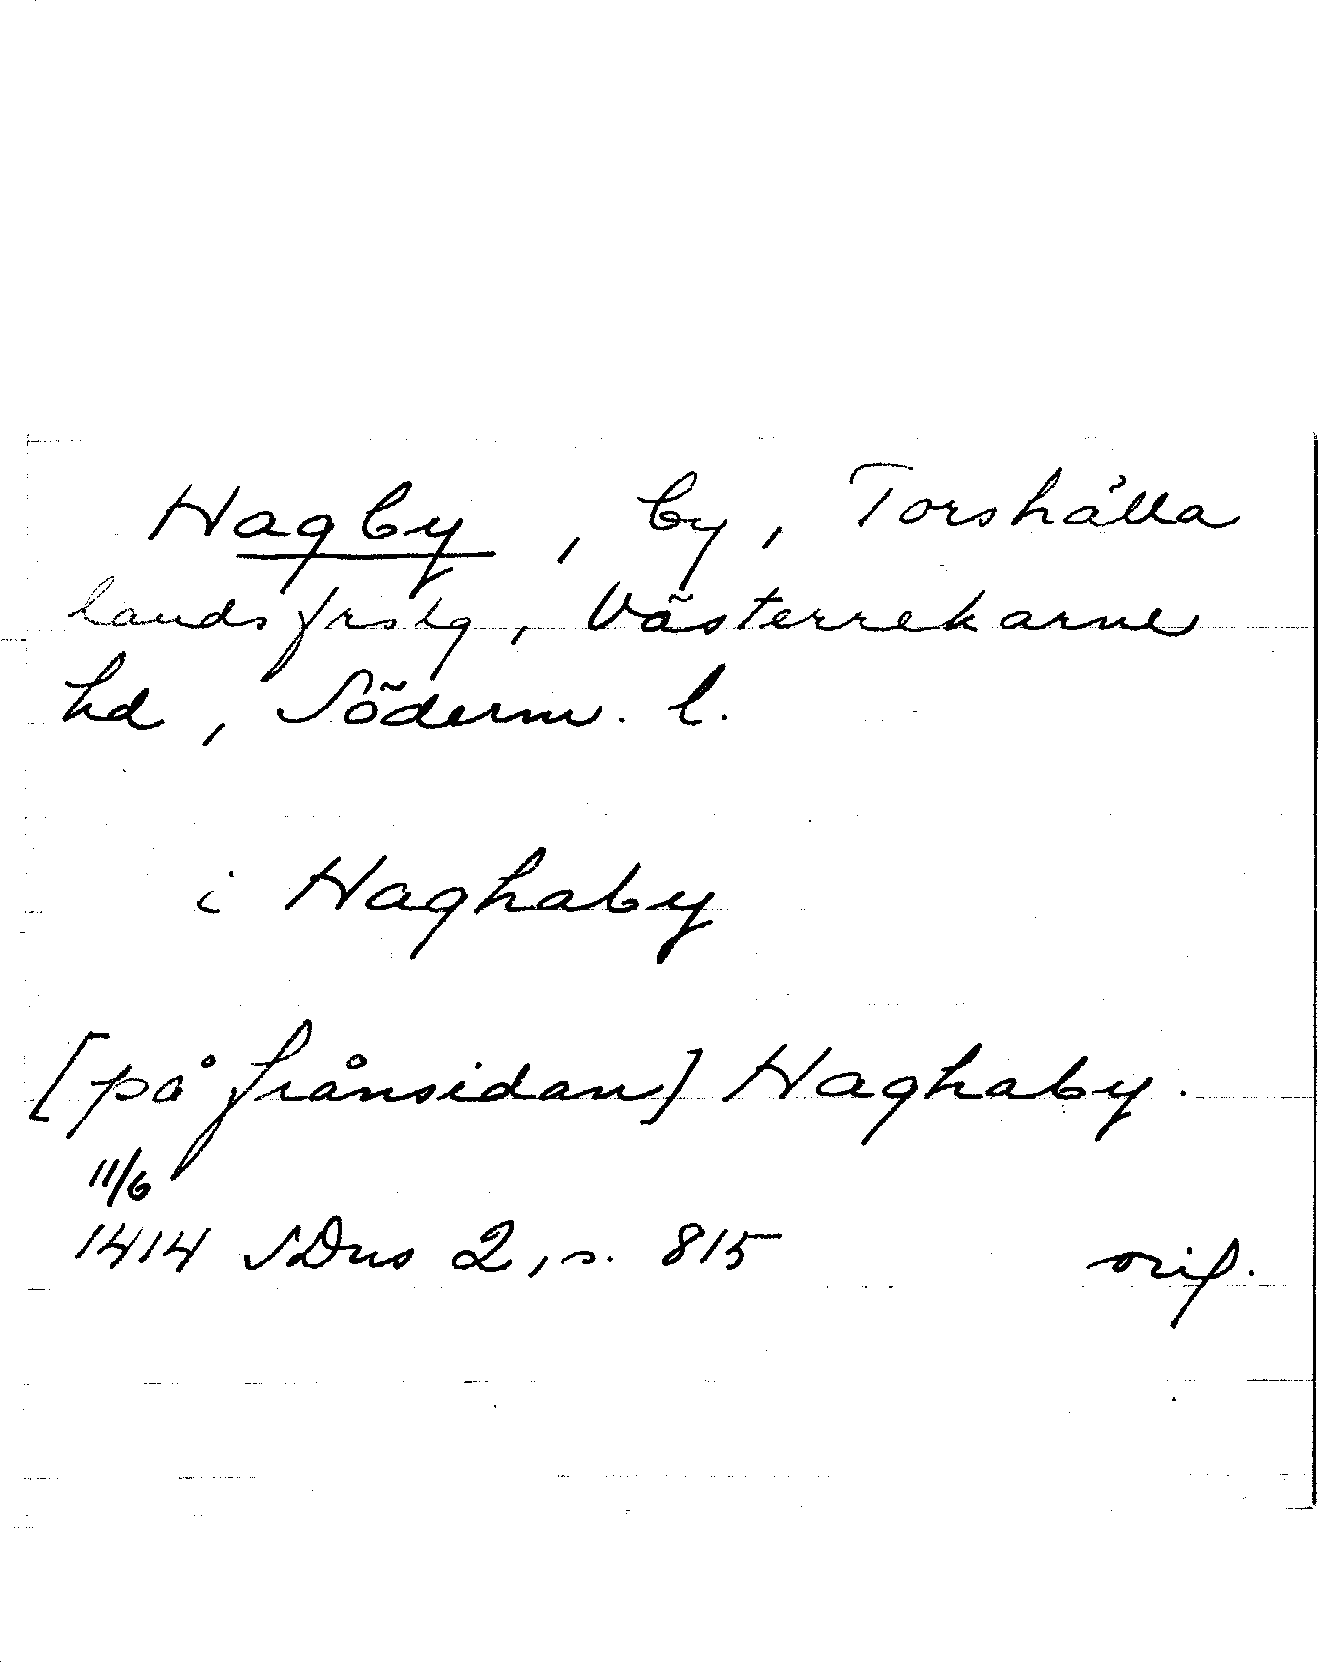 Hagby, by, Torshälla
landsfrslg, Västerrekarne
hd, Söderm. l.
i Haghaby
[på frånsidan] Haghaby.
11/6
1414 SDns 2, s. 815 orig.